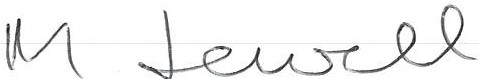 M Jewell